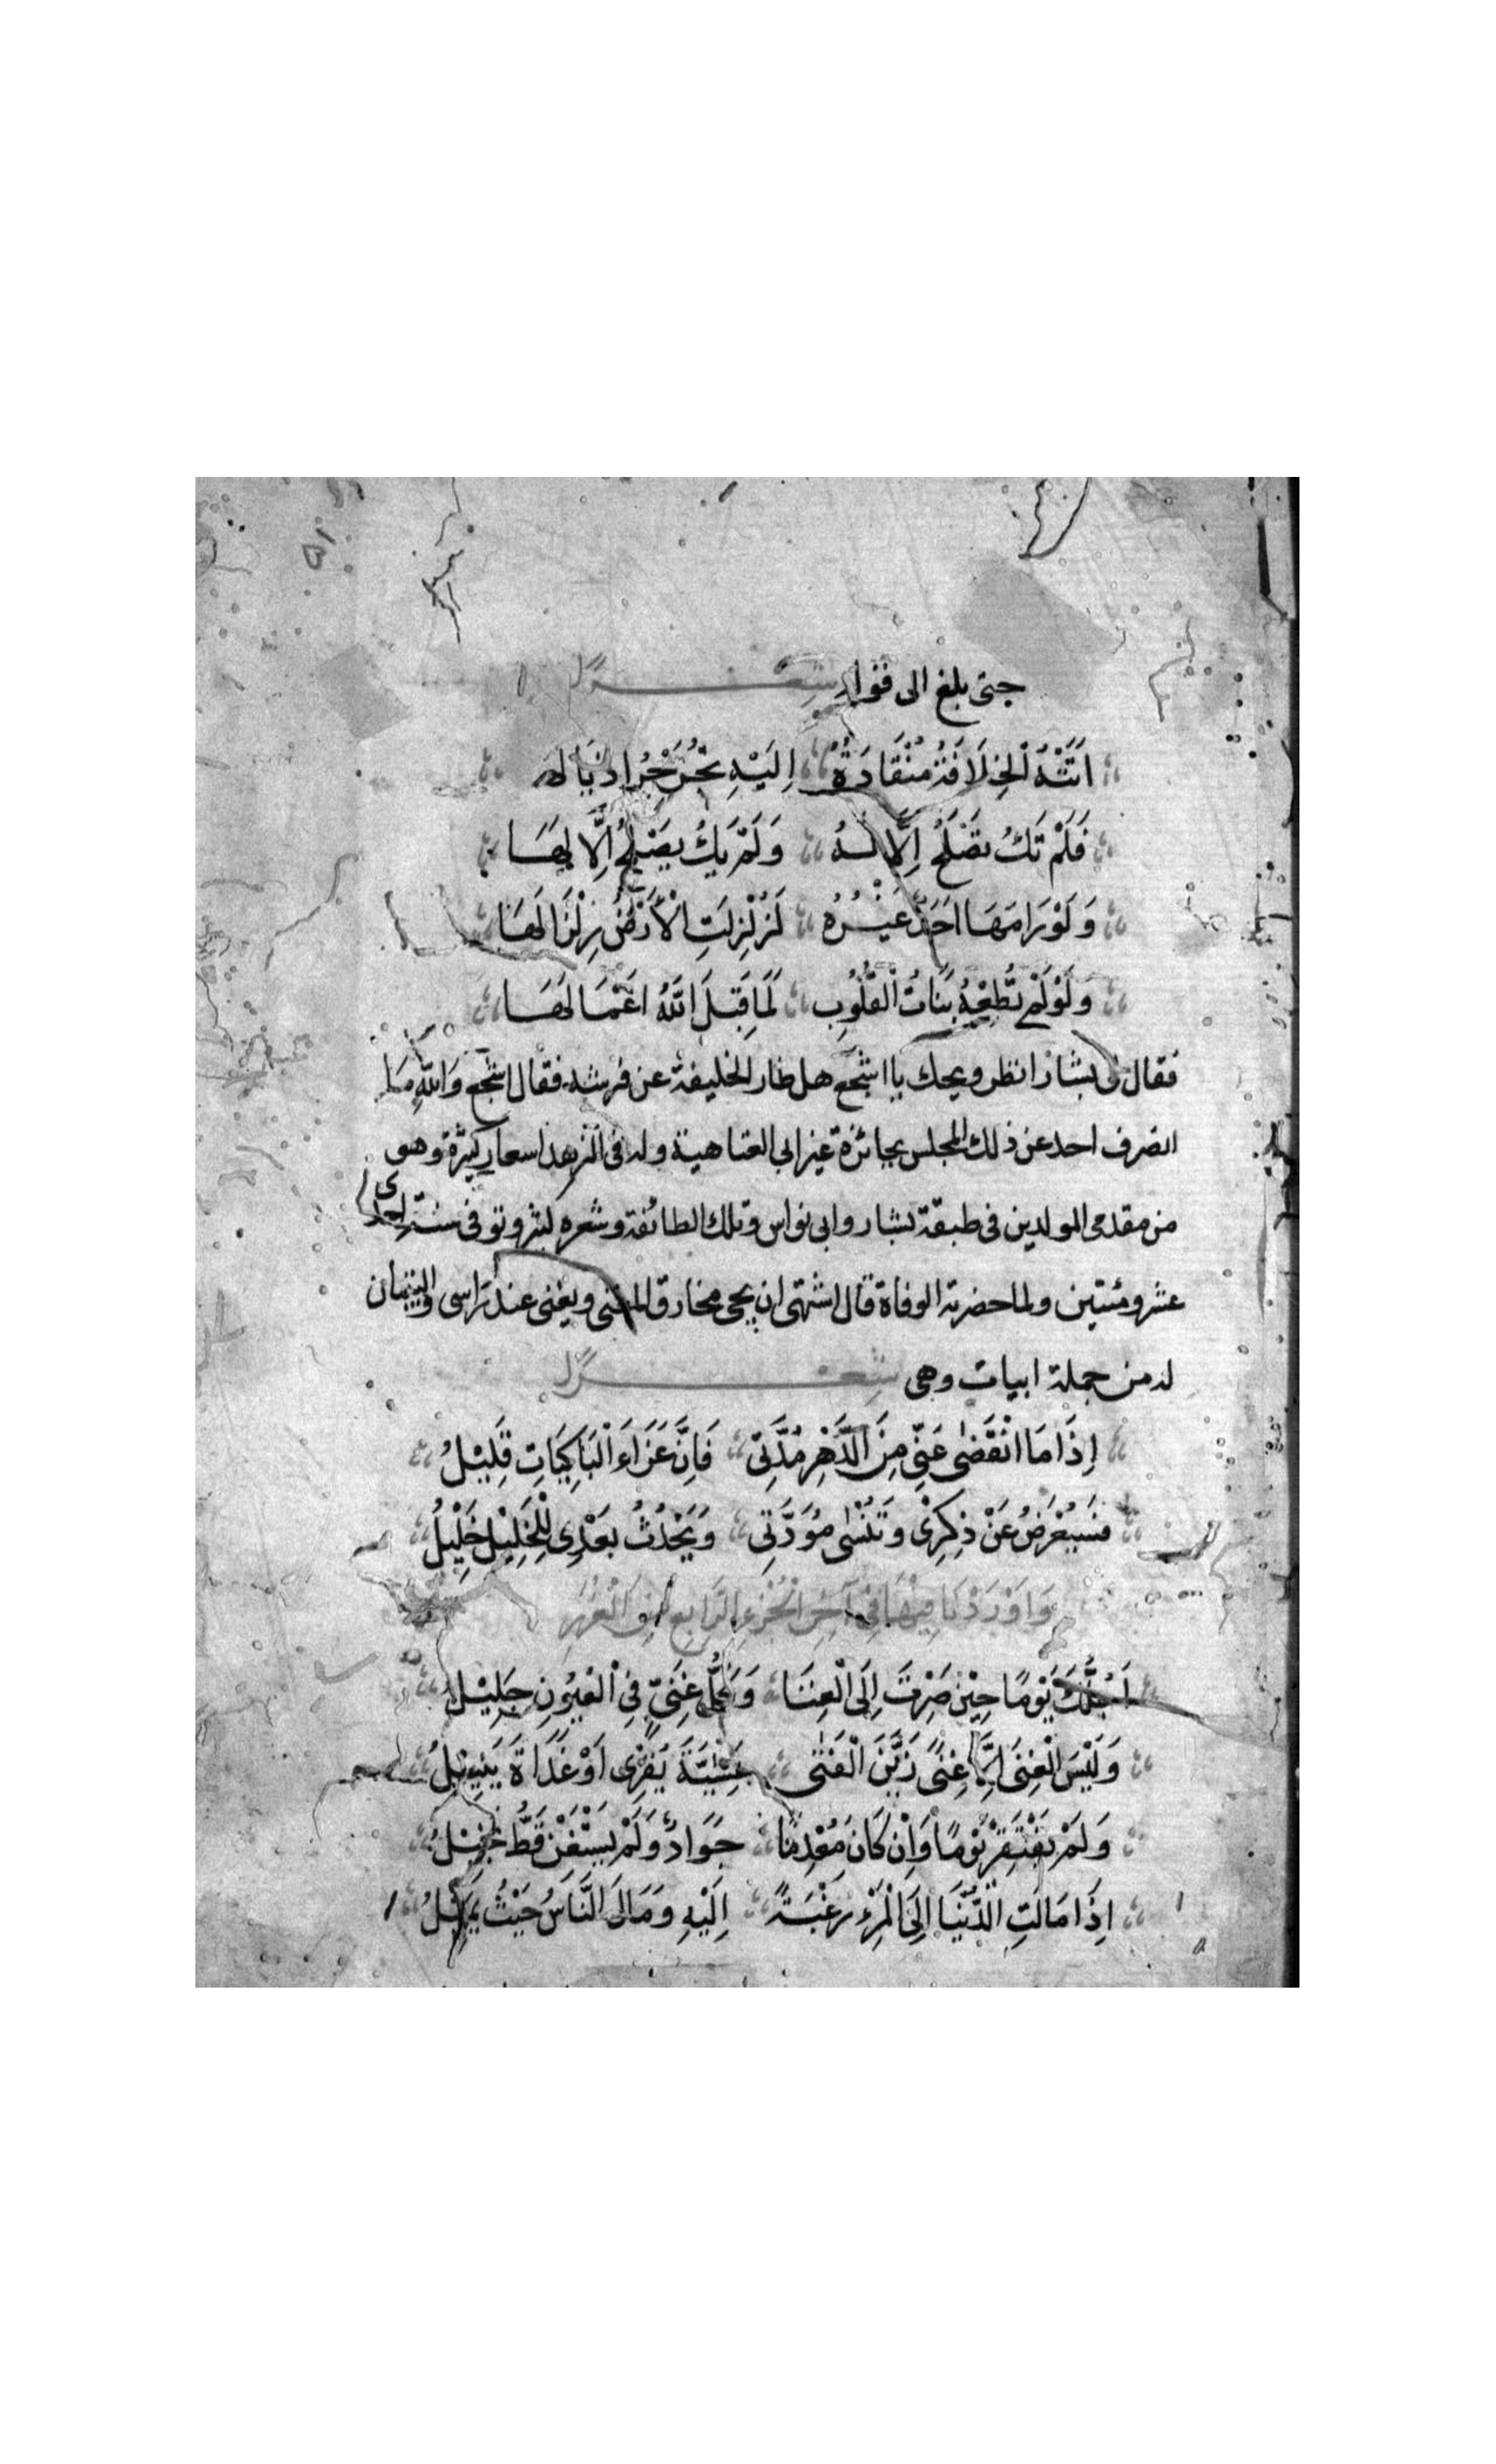 ٥١
حتى بلغ الى قوله شعرًا
اَتَتْهُ الْخِلَافَةُ مُنْقَادَةً اِلَيْهِ تُجَرِّرُ اذيالها
فَلَمْ تَكُ تَصْلُحُ اِلَّا لَهُ وَلَمْ يَكُ يَصْلُحُ اِلَّا لَهَا
وَلَوْ رَامَهَا اَحَدٌ غَيْرُهُ لَزُلْزِلَتِ الْاَرْضُ زِلْزَالَهَا
وَلَوْ لَمْ تُطِعْهُ بَنَاتُ الْقُلُوبِ لَمَا قَبِلَ اللّٰهُ اَعْمَالَهَا
فقال لى بشار انظر ويحك يا اشجع هل طار الخليفة عن فرشه فقال اشجع وَاللّٰهِ مَا
انصرف احد عن ذلك المجلس بجائزة غير ابى العتاهية وله فى الزهد اسعار كثيرة وهو
من مقدمى المولدين فى طبقة بشار وابى نواس وتلك الطائفة وشعره كثير وتوفى سنة احدى
عشر ومئتين ولما حضرته الوفاة قال اشتهى ان يجى مخارق المغنى ويغنى عند رَاسى والبيتان
له من جملة ابيات وهى شعرًا
اِذَا مَا انْقَضٰى عَنِّى مِنَ الدَّهْرِ مُدَّتِى فَاِنَّ عَزَاءَ الْبَاكِيَاتِ قَلِيْلُ
فسَيُعْرَضُ عَنْ ذِكْرِىْ وَتَنْسٰى مَوَدَّتِى وَيَحْدُثُ بَعْدِى لِلْخَلِيْلِ خَلِيْلُ
وَاَوْرَدْنَا فِيْهَا فِى آخِرِ الْجُزْءِ الرَّابِعِ مِنَ الْغُرَرِ
اَجَلَّكَ يَوْمًا حِيْنَ صِرْتَ اِلَى الْغِنَا وَكُلُّ غَنِىٍّ فِى الْعُيُونِ جَلِيْلُ
وَلَيْسَ الْغِنَى اِلَّا غِنًى زَيَّنَ الْفَتٰى عَشِيَّةَ يَقْرِى اَوْ غَدَاةَ يُنِيْلُ
وَلَمْ يَفْتَقِرْ يَوْمًا وَاِنْ كَانَ مُعْدِمًا جَوَادٌ وَلَمْ يَسْتَغْنِ قَطُّ بَخِيْلُ
اِذَا مَالَتِ الدُّنْيَا اِلَى الْمَرْءِ رَغْبَةً اِلَيْهِ وَمَالَ النَّاسُ حَيْثُ يَمِيْلُ